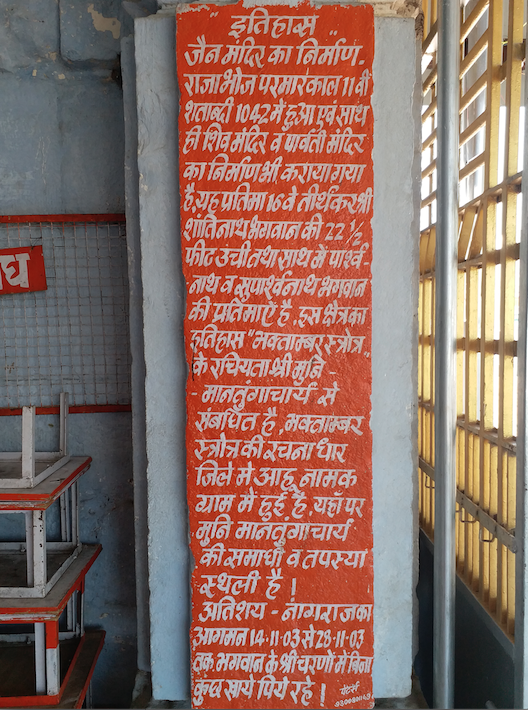 "इतिहास"
जैन मंदिर का निर्माण.
राजा भोज परमारकाल 11 वी
शताब्दी 1042 में हुआ एवं साथ
ही शिव मंदिर व पार्वती मंदिर
का निर्माण भी कराया गया
है. यह प्रतिमा 16 वे तीर्थंकर श्री
शांतिनाथ भगवान की 22 ½
फीट उची तथा साथ में पार्श्व-
नाथ व सुपार्श्वनाथ भगवान
की प्रतिमाएँ है. इस क्षेत्र का
इतिहास "भक्ताम्बर स्त्रोत्र"
के रचियता श्री मुनि -
- मानतुंगाचार्य से
संबंधित है. भक्ताम्बर
स्त्रोत्र की रचना धार
जिले मे आहू नामक
ग्राम में हुई है. यहाँ पर
मुनि मानतुंगाचार्य
की समाधी व तपस्या
स्थली है !
अतिशय - नागराज का
आगमन 14-11-03 से 28-11-03
तक भगवान के श्री चरणों में बिना
कुछ खाये पिये रहे !
पेंटर्स